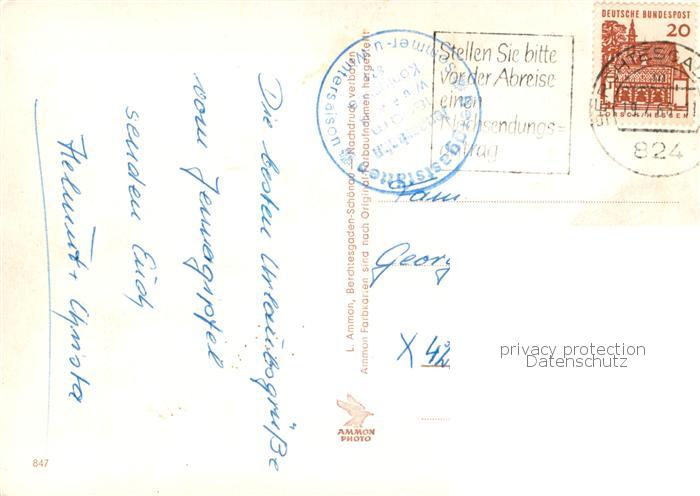 Die besten Urlaubsgrüße
vom Jennergipfel
senden Euch
Helmut + Christa
847
L. Ammon, Berchtesgaden-Schönau – Nachdruck verboten
Ammon Farbkarten sind nach Original-Farbaufnahmen hergestellt
AMMON
PHOTO
Berggaststätte
Sommer- u. Wintersaison
Stellen Sie bitte
vor der Abreise
einen
Nachsendungs=
antrag
DEUTSCHE BUNDESPOST
20
LORSCH/HESSEN
824
Fam
Georg
X 42
privacy protection
Datenschutz